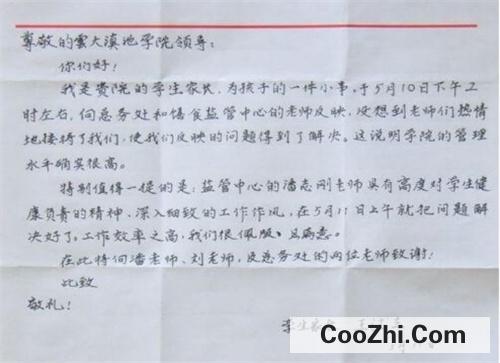 尊敬的雲大滇池学院领导：
你们好！
我是贵院的学生家长，为孩子的一件小事，于5月10日下午2
时左右，向总务处和饮食监管中心的老师反映，没想到老师们热情
地接待了我们，使我们反映的问题得到了解决。这说明学院的管理
水平确实很高。
特别值得一提的是：监管中心的潘志刚老师具有高度对学生健
康负责的精神、深入细致的工作作风，在5月11日上午就把问题解
决好了。工作效率之高，我们很佩服、且满意。
在此特向潘老师、刘老师，及总务处的两位老师致谢！
此致
敬礼！
学生家长
CooZhi.Com